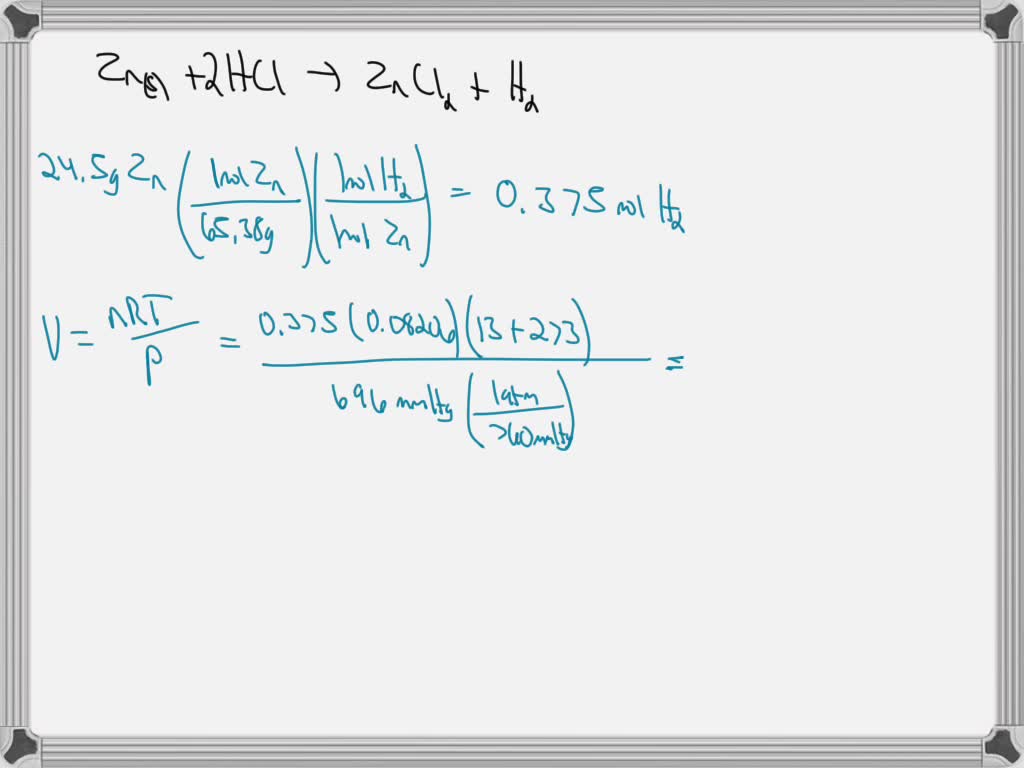 Zn(s) + 2HCl → ZnCl₂ + H₂
24.5g Zn (1 mol Zn / 65.38g) (1 mol H₂ / 1 mol Zn) = 0.375 mol H₂
V = nRT / P = 0.375 (0.08206) (13 + 273) / 696 mmHg (1 atm / 760 mmHg) =